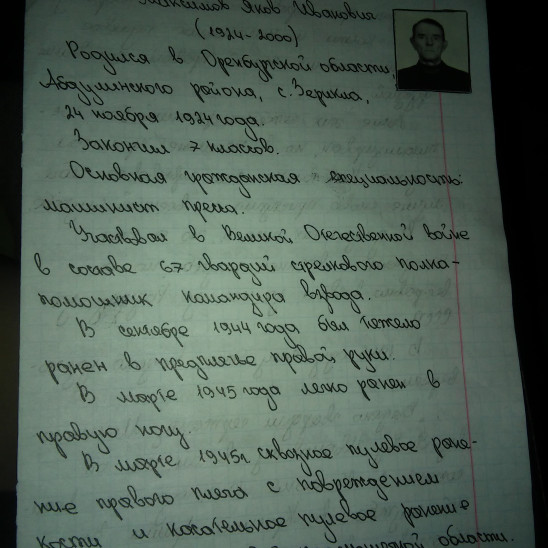 Максимов Яков Иванович
(1924-2000)
Родился в Оренбургской области,
Абдулинского района, с. Зерикла,
24 ноября 1924 года.
Закончил 7 классов.
Основная гражданская специальность:
машинист пресса.
Участвовал в Великой Отечественной войне
в составе 67 гвардий стрелкового полка-
помошник командира взвода.
В сентябре 1944 года был тяжело
ранен в предплечье правой руки.
В марте 1945 года легко ранен в
правую ногу
В марте 1945г. сквозное пулевое ране-
ние правого плеча с повреждением
кости и касательное пулевое ранение
области.